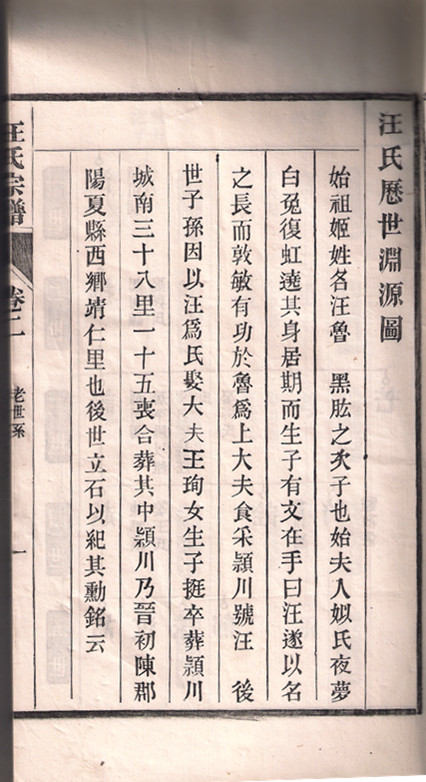 汪氏歷世淵源圖
始祖姬姓名汪魯　黑肱之次子也始夫人姒氏夜夢
白兔復虹遶其身居期而生子有文在手曰汪遂以名
之長而敦敏有功於魯爲上大夫食采潁川號汪　後
世子孫因以汪爲氏娶大夫王珣女生子挺卒葬潁川
城南三十八里一十五喪合葬其中潁川乃晉初陳郡
陽夏縣西鄉靖仁里也後世立石以紀其勳銘云
汪氏宗譜
卷二
老世系
一